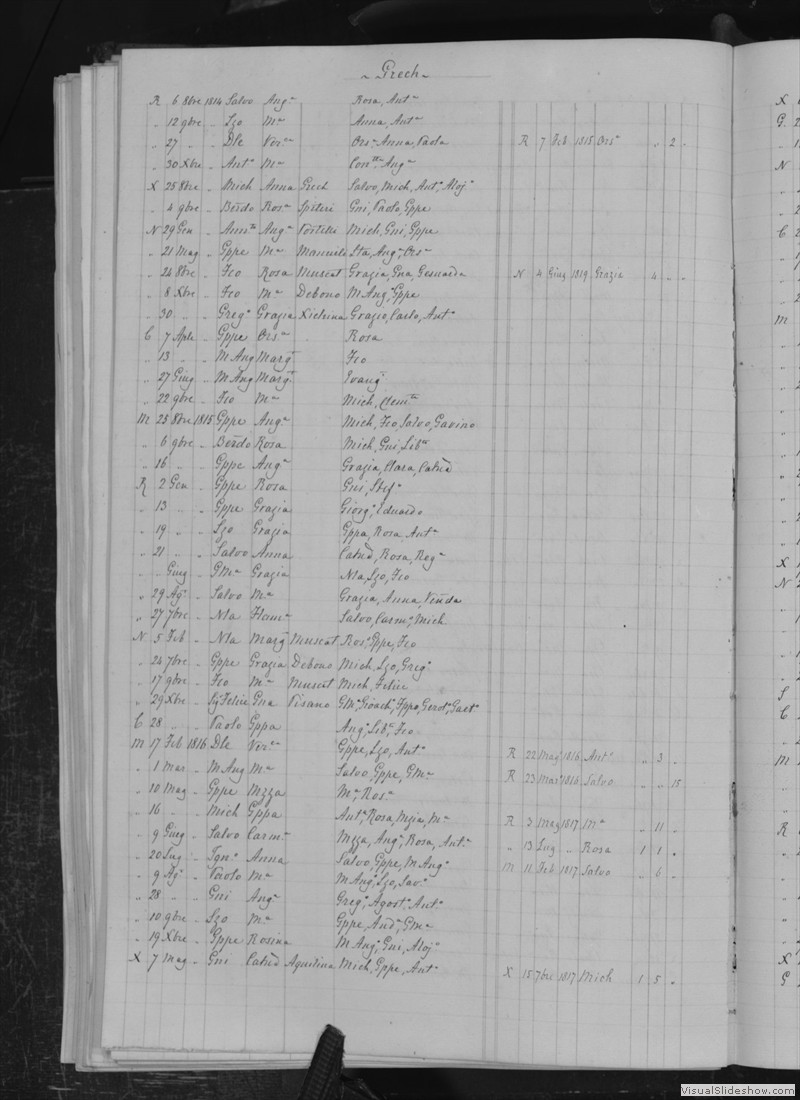 Grech
R 6 8bre 1814 Salvo Ang.a Rosa, Ant.a
" 12 9bre " Lzo M.a Anna, Ant.a
" 27 " " Dle Ver.ca Ors.a Anna, Paola R 7 Feb 1815 Ors.a " 2 "
" 30 Xbre " Ant.o M.a Ang.a
X 25 8bre " Mich Anna Grech Salvo, Mich, Ant.o, Aloj.o
" 4 9bre " Ros.a Spiteri Gni, Paolo, Gppe
N 29 Gen " Ang.a Mich, Gni, Gppe
" 21 Mag " Gppe M.a Ang.o, Ors.a
" 24 8bre " Fco Rosa Muscat Grazia, Gna, Gesualda N 4 Giug 1819 Grazia 4 " "
" 8 Xbre " Fco M.a Debono M Ang.o, Gppe
" 30 " " Greg.o Grazia Xicluna Grazio, Carlo, Ant.o
C 7 Aple " Gppe Ors.a Rosa
" 13 " " M Ang Marg.t Fco
" 27 Giug " M Ang Marg.t Evang.a
" 22 9bre " Fco M.a Mich, Clem.te
M 23 8bre 1815 Gppe Ang.a Mich, Fco, Salvo, Gavino
" 6 9bre " Rosa Mich, Gni, Lib.ta
" 16 " " Gppe Ang.a Grazia, Clara, Catnd
R 2 Gen " Gppe Rosa Gni, Stef.o
" 13 " " Gppe Grazia Giorg.o, Eduardo
" 19 " " Lzo Grazia Gppa, Rosa, Ant.a
" 21 " " Salvo Anna Catnd, Rosa, Reg.a
" " Giug " GMa Grazia Nla, Lzo, Fco
" 29 Ag.o " Salvo M.a Grazia, Anna, Vinda
" 27 7bre " Nla Flam.a Salvo, Carm.o, Mich
N 5 Feb " Nla Marg.t Muscat Ros.o, Gppe, Fco
" 24 7bre " Gppe Grazia Debono Mich, Lzo, Greg.o
" 17 9bre " Fco M.a Muscat Mich, Felice
" 29 Xbre " Sg Felice Gna Pisano GMa, Gioach.o, Fppo, Gerd.o, Gaet.o
C 28 " " Paolo Gppa Ang.o, Lib.o, Fco
M 17 Feb 1816 Dle Ver.ca Gppe, Lzo, Ant.o R 22 Mag 1816 Ant.o " 3 "
" 1 Mar " M Ang M.a Salvo, Gppe, GMa R 23 Mar 1816 Salvo " " 15
" 10 Mag " Gppe Mzza M.a, Ros.a
" 16 " " Mich Gppa Ant.a, Rosa, Mzia, M.a R 3 Mag 1817 M.a " 11 "
" 9 Giug " Salvo Carm.a Mzza, Ang.a, Rosa, Ant.a " 13 Lug " Rosa 1 1 "
" 20 Lug " Ign.o Anna Salvo, Gppe, M Ang.o M 11 Feb 1817 Salvo " 6 "
" 9 Ag.o " Paolo M.a M Ang.o, Lzo, Sav.o
" 28 " " Gni Ang.a Greg.o, Agost.o, Ant.o
" 10 9bre " Lzo M.a Gppe, And.a, GMa
" 19 Xbre " Gppe Rosina M Ang.o, Gni, Aloj.o
X 7 Mag " Gni Catnd Aquilina Mich, Gppe, Ant.o X 15 7bre 1817 Mich 1 5 "
VisualSlideshow.com